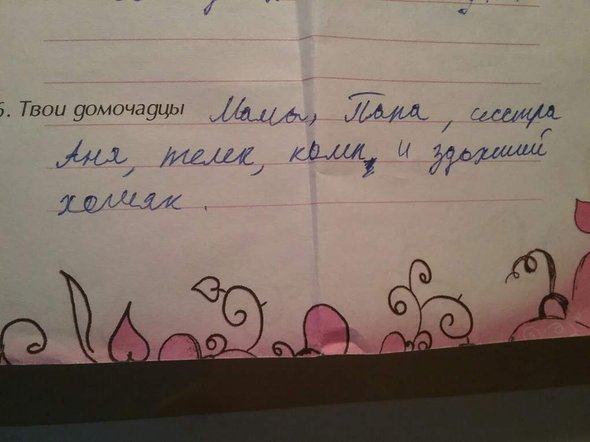 6. Твои домочадцы Мама, Папа, сестра
Аня, телек, комп, и здохший
хомяк.